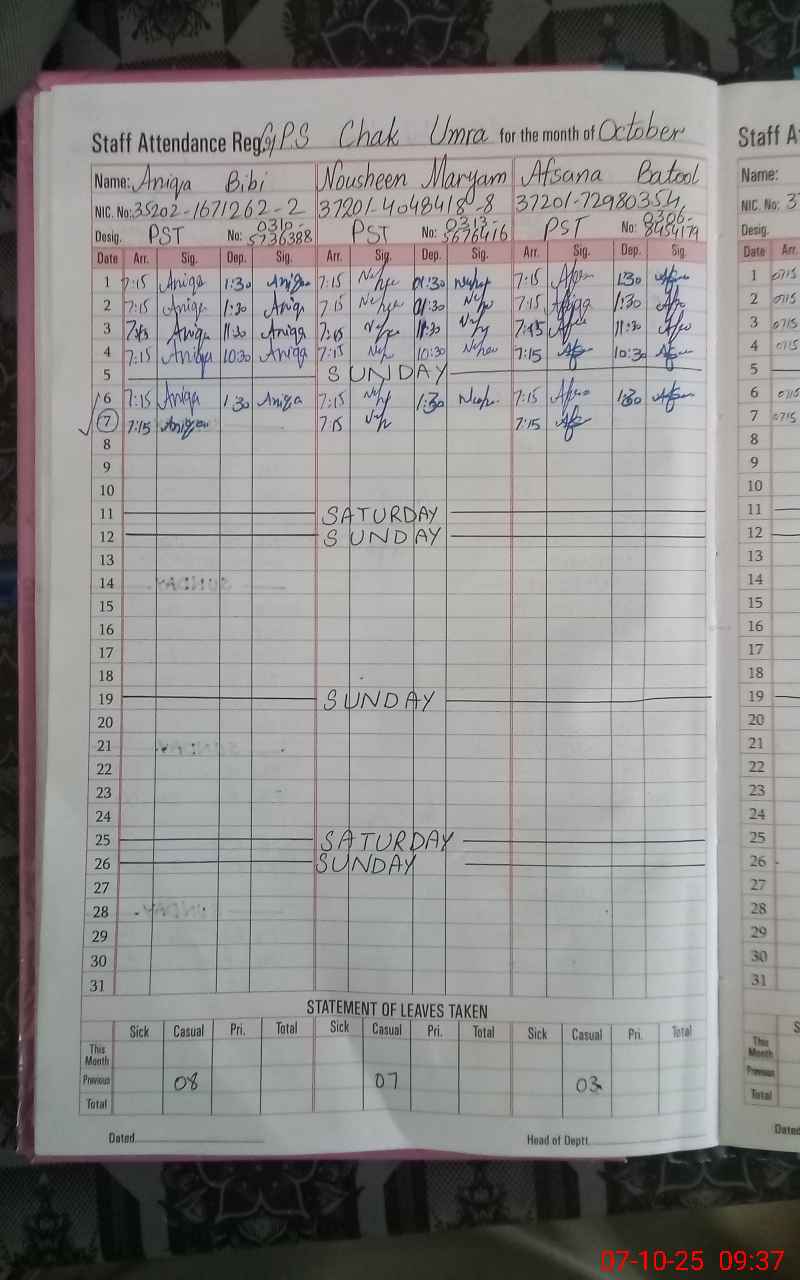 Staff Attendance Reg. GPS Chak Umra for the month of October
Name: Aniqa Bibi Nousheen Maryam Afsana Batool
NIC. No: 35202-1671262-2 37201-4048418-8 37201-7298035-4
Desig. PST No: 0310-5736388 PST No: 0313-5676416 PST No: 0306-8454179
Date Arr. Sig. Dep. Sig. Arr. Sig. Dep. Sig. Arr. Sig. Dep. Sig.
1 7:15 Aniqa 1:30 Aniqa 7:15 01:30 7:15 1:30
2 7:15 Aniqa 1:30 Aniqa 7:15 01:30 7:15 1:30
3 7:15 Aniqa 11:30 Aniqa 7:15 11:30 7:15 11:30
4 7:15 Aniqa 10:30 Aniqa 7:15 10:30 7:15 10:30
5 SUNDAY
6 7:15 Aniqa 1:30 Aniqa 7:15 1:30 7:15 1:30
7 7:15 Aniqa 7:15 7:15
8
9
10
11 SATURDAY
12 SUNDAY
13
14
15
16
17
18
19 SUNDAY
20
21
22
23
24
25 SATURDAY
26 SUNDAY
27
28
29
30
31
STATEMENT OF LEAVES TAKEN
Sick Casual Pri. Total Sick Casual Pri. Total Sick Casual Pri. Total
This Month
Previous 08 07 03
Total
Dated Head of Deptt.
Staff A
Name:
NIC. No: 3
Desig.
Date Arr.
1 0715
2 0715
3 0715
4 0715
5
6 0715
7 0715
8
9
10
11
12
13
14
15
16
17
18
19
20
21
22
23
24
25
26
27
28
29
30
31
S
This Month
Previous
Total
Dated
07-10-25 09:37